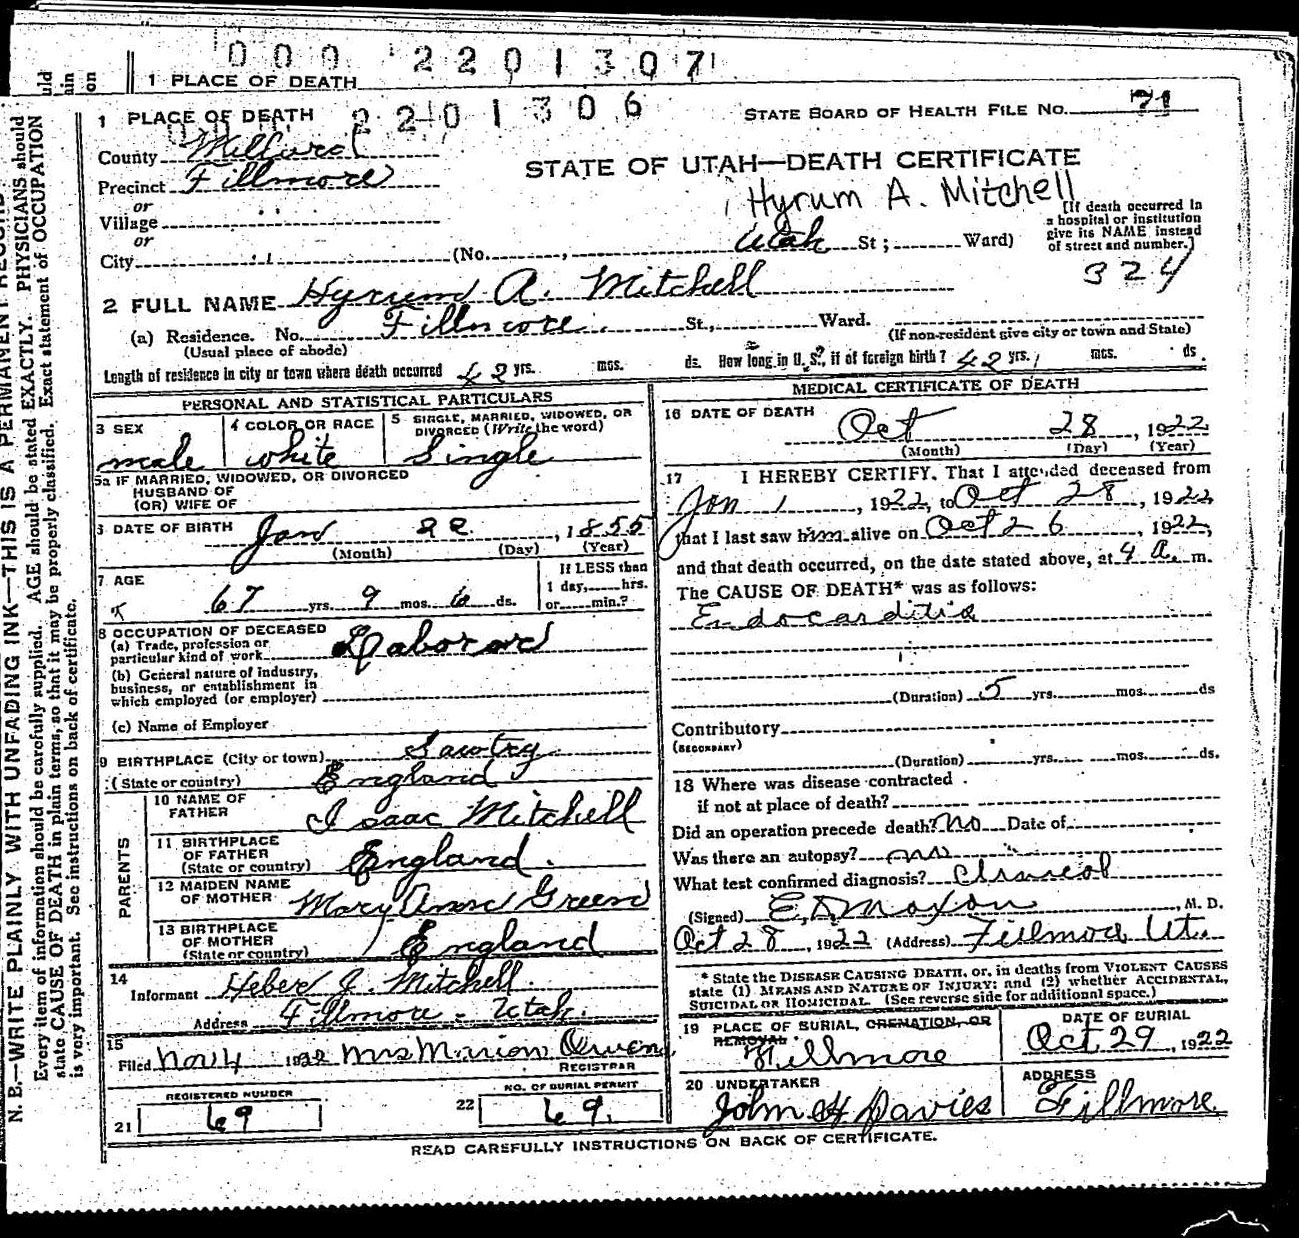 000 2201307
1 PLACE OF DEATH
1 PLACE OF DEATH 2201306
STATE BOARD OF HEALTH FILE NO. 71
County Millard
STATE OF UTAH—DEATH CERTIFICATE
Precinct Fillmore
Hyrum A. Mitchell
or
Village
or
[If death occurred in
a hospital or institution
give its NAME instead
of street and number.]
City (No. , Utah St; Ward)
324
2 FULL NAME Hyrum A. Mitchell
(a) Residence. No. Fillmore. St., Ward.
(Usual place of abode) (If non-resident give city or town and State)
Length of residence in city or town where death occurred 42 yrs. mos. ds. How long in U. S., if of foreign birth? 42 yrs. mos. ds.
PERSONAL AND STATISTICAL PARTICULARS
3 SEX
male
4 COLOR OR RACE
white
5 SINGLE, MARRIED, WIDOWED, OR
DIVORCED (Write the word)
Single
5a IF MARRIED, WIDOWED, OR DIVORCED
HUSBAND OF
(OR) WIFE OF
6 DATE OF BIRTH Jan 22, 1855
(Month) (Day) (Year)
7 AGE
67 yrs. 9 mos. 6 ds.
If LESS than
1 day, hrs.
or min.?
8 OCCUPATION OF DECEASED
(a) Trade, profession or
particular kind of work Laborar
(b) General nature of industry,
business, or establishment in
which employed (or employer)
(c) Name of Employer
9 BIRTHPLACE (City or town) Sawtry
(State or country) England
PARENTS
10 NAME OF
FATHER Isaac Mitchell
11 BIRTHPLACE
OF FATHER
(State or country) England.
12 MAIDEN NAME
OF MOTHER Mary Green
13 BIRTHPLACE
OF MOTHER
(State or country) England
14
Informant Heber J. Mitchell.
Address Fillmore - Utah.
15
Filed Nov 4 1922 Mrs Marion Owens
REGISTRAR
REGISTERED NUMBER
21 69
NO. OF BURIAL PERMIT
22 69.
MEDICAL CERTIFICATE OF DEATH
16 DATE OF DEATH
Oct 28, 1922
(Month) (Day) (Year)
17 I HEREBY CERTIFY, That I attended deceased from
Jan 1, 1922, to Oct 28, 1922
that I last saw him alive on Oct 26, 1922,
and that death occurred, on the date stated above, at 4 a. m.
The CAUSE OF DEATH* was as follows:
Endocarditis
(Duration) 5 yrs. mos. ds
Contributory
(SECONDARY)
(Duration) yrs. mos. ds.
18 Where was disease contracted
if not at place of death?
Did an operation precede death? No Date of
Was there an autopsy? no
What test confirmed diagnosis?
(Signed) E. D. Moxon, M. D.
Oct 28, 1922 (Address) Fillmore Ut.
* State the DISEASE CAUSING DEATH, or, in deaths from VIOLENT CAUSES
state (1) MEANS AND NATURE OF INJURY; and (2) whether ACCIDENTAL,
SUICIDAL OR HOMICIDAL. (See reverse side for additional space.)
19 PLACE OF BURIAL, CREMATION, OR
REMOVAL Fillmore
DATE OF BURIAL
Oct 29, 1922
20 UNDERTAKER
John H. Davies
ADDRESS
Fillmore.
READ CAREFULLY INSTRUCTIONS ON BACK OF CERTIFICATE.
N. B.—WRITE PLAINLY WITH UNFADING INK—THIS IS A PERMANENT RECORD
Every item of information should be carefully supplied. AGE should be stated EXACTLY. PHYSICIANS should
state CAUSE OF DEATH in plain terms, so that it may be properly classified. Exact statement of OCCUPATION
is very important. See instructions on back of certificate.